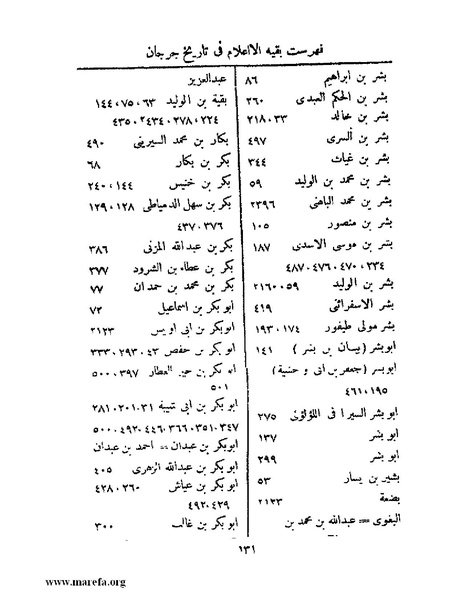 فهرست بقيه الااعلام فى تاريخ جرجان
بشر بن ابراهيم ٨٦
بشر بن الحكم العبدى ٢٦٠
بشر بن خالد ٢١٨،٣٣
بشر بن السرى ٤٩٧
بشر بن غياث ٣٤٤
بشر بن محمد بن الوليد ٥٩
بشر بن محمد الباهى ٢٣٩٦
بشر بن منصور ١٠٥
بشر بن موسى الاسدى ١٨٧
٤٨٧،٤٧٦،٤٧٠،٢٣٤
بشر بن الوليد ٢١٦٠،٥٩
بشر الاسفرائنى ٤١٩
بشر مولى طيفور ١٩٣،١٧٤
ابوبشر (بيسان بن بشر) ١٤١
ابوبشر (جعفر بن ابى وحشية)
٤٦١،١٩٥
ابو بشر السيرا فى اللؤلؤى ٢٧٥
ابو بشر ١٣٧
ابو بشر ٢٩٩
بشير بن يسار ٥٣
بضعة ٢١٣٣
البغوى = عبدالله بن محمد بن
عبدالعزيز
بقية بن الوليد ١٤٤،٧٥،٦٣
٤٣٥،٢٤٣٤،٢٧٨،٢٢٤
بكار بن محمد السيرينى ٤٩٠
بكر بن بكار ٦٨
بكر بن خنيس ٢٤٠،١٤٤
بكر بن سهل الدمياطى ١٢٩،١٢٨
٤٣٧،٣٧٦
بكر بن عبدالله المزنى ٣٨٦
بكر بن عطاء بن الشرود ٣٧٧
بكر بن محمد بن حمدان ٧٧
ابو بكر بن اسماعيل ٧٢
ابوبكر بن ابى اويس ٢١٢٣
ابو بكر بن حفص ٣٣٣،٢٩٣،٤٣
العطار ٥٠٠،٣٩٧
٥٠١
ابو بكر بن ابى شيبة ٢٨١،٢٠١،٣١
٥٠٠،٤٩٢،٤٤٦،٣٦٦،٣٥١،٣٤٧
ابوبكر بن عبدان = احمد بن عبدان
ابوبكر بن عبدالله الزهرى ٤٠٥
ابوبكر بن عياش ٤٣٨،٢٦٠
٤٩٢،٤٢٩
ابوبكر بن غالب ٣٠٠
١٣١
www.marefa.org